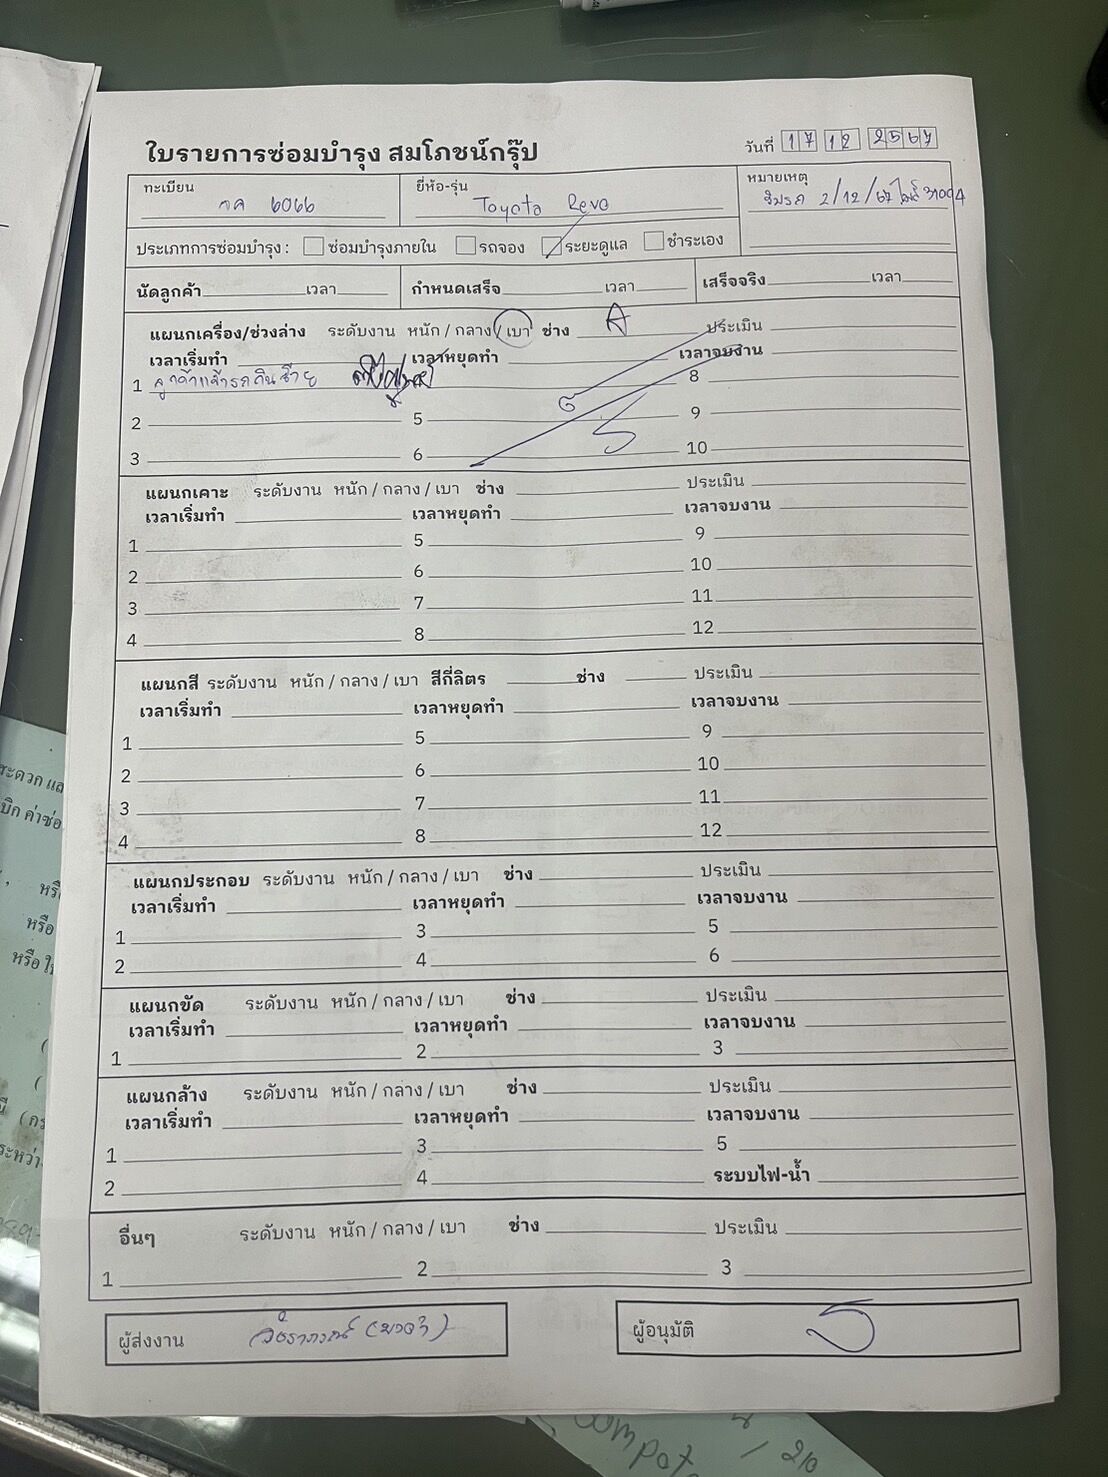 ใบรายการซ่อมบำรุง สมโภชน์กรุ๊ป
วันที่ 17 12 2567
ทะเบียน
กค 6066
ยี่ห้อ-รุ่น
Toyota Revo
หมายเหตุ
2/12/67
ประเภทการซ่อมบำรุง : ซ่อมบำรุงภายใน รถจอง ระยะดูแล ชำระเอง
นัดลูกค้า เวลา กำหนดเสร็จ เวลา เสร็จจริง เวลา
แผนกเครื่อง/ช่วงล่าง ระดับงาน หนัก / กลาง / เบา ช่าง A ประเมิน
เวลาเริ่มทำ เวลาหยุดทำ เวลาจบงาน
1 ลูกค้าแจ้งรถกินซ้าย 8
2 5 9
3 6 10
แผนกเคาะ ระดับงาน หนัก / กลาง / เบา ช่าง ประเมิน
เวลาเริ่มทำ เวลาหยุดทำ เวลาจบงาน
1 5 9
2 6 10
3 7 11
4 8 12
แผนกสี ระดับงาน หนัก / กลาง / เบา สีกี่ลิตร ช่าง ประเมิน
เวลาเริ่มทำ เวลาหยุดทำ เวลาจบงาน
1 5 9
2 6 10
3 7 11
4 8 12
แผนกประกอบ ระดับงาน หนัก / กลาง / เบา ช่าง ประเมิน
เวลาเริ่มทำ เวลาหยุดทำ เวลาจบงาน
1 3 5
2 4 6
แผนกขัด ระดับงาน หนัก / กลาง / เบา ช่าง ประเมิน
เวลาเริ่มทำ เวลาหยุดทำ เวลาจบงาน
1 2 3
แผนกล้าง ระดับงาน หนัก / กลาง / เบา ช่าง ประเมิน
เวลาเริ่มทำ เวลาหยุดทำ เวลาจบงาน
1 3 5
2 4 ระบบไฟ-น้ำ
อื่นๆ ระดับงาน หนัก / กลาง / เบา ช่าง ประเมิน
1 2 3
ผู้ส่งงาน
ผู้อนุมัติ